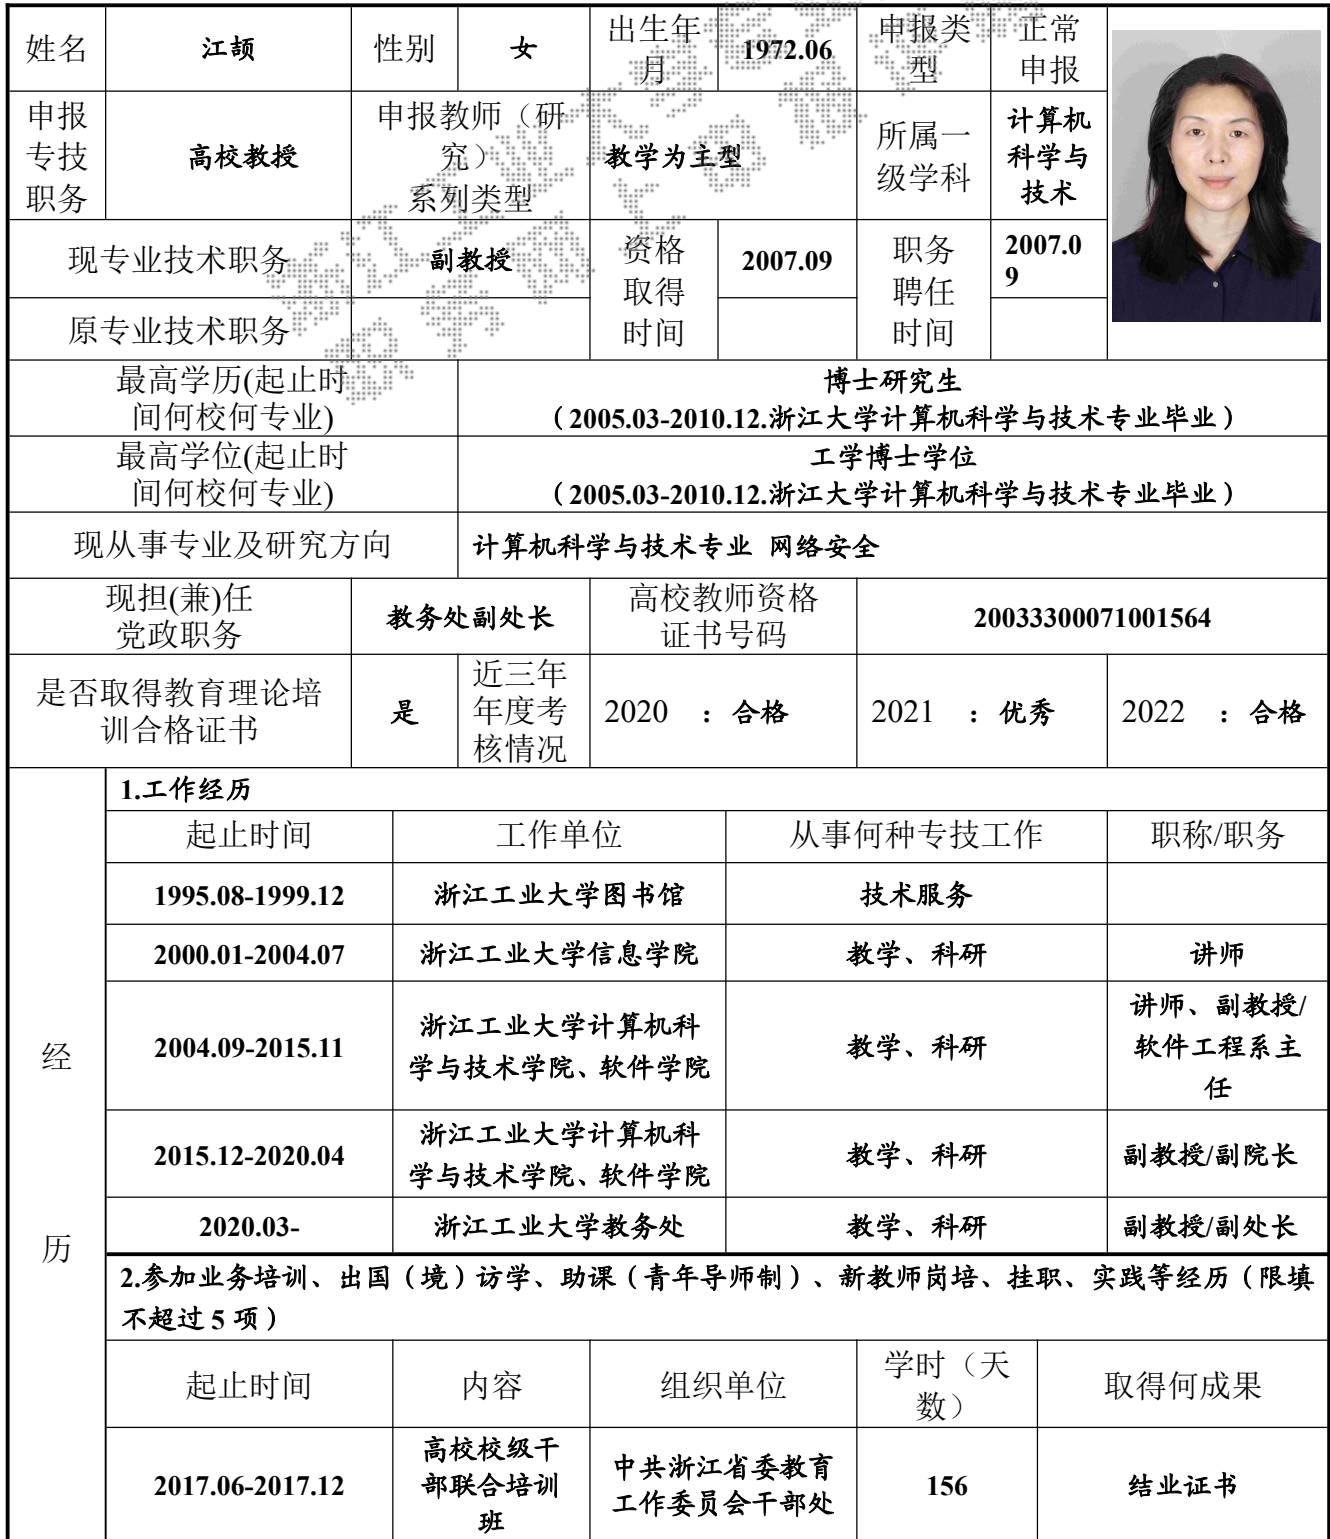 姓名 江颉 性别 女 出生年月 1972.06 申报类型 正常申报
申报专技职务 高校教授 申报教师（研究）系列类型 教学为主型 所属一级学科 计算机科学与技术
现专业技术职务 副教授 资格取得时间 2007.09 职务聘任时间 2007.09
原专业技术职务
最高学历(起止时间何校何专业) 博士研究生
（2005.03-2010.12.浙江大学计算机科学与技术专业毕业）
最高学位(起止时间何校何专业) 工学博士学位
（2005.03-2010.12.浙江大学计算机科学与技术专业毕业）
现从事专业及研究方向 计算机科学与技术专业 网络安全
现担(兼)任党政职务 教务处副处长 高校教师资格证书号码 20033300071001564
是否取得教育理论培训合格证书 是 近三年年度考核情况 2020 ：合格 2021 ：优秀 2022 ：合格
经历
1.工作经历
起止时间 工作单位 从事何种专技工作 职称/职务
1995.08-1999.12 浙江工业大学图书馆 技术服务
2000.01-2004.07 浙江工业大学信息学院 教学、科研 讲师
2004.09-2015.11 浙江工业大学计算机科学与技术学院、软件学院 教学、科研 讲师、副教授/软件工程系主任
2015.12-2020.04 浙江工业大学计算机科学与技术学院、软件学院 教学、科研 副教授/副院长
2020.03- 浙江工业大学教务处 教学、科研 副教授/副处长
2.参加业务培训、出国（境）访学、助课（青年导师制）、新教师岗培、挂职、实践等经历（限填
不超过 5 项）
起止时间 内容 组织单位 学时（天数） 取得何成果
2017.06-2017.12 高校校级干部联合培训班 中共浙江省委教育工作委员会干部处 156 结业证书